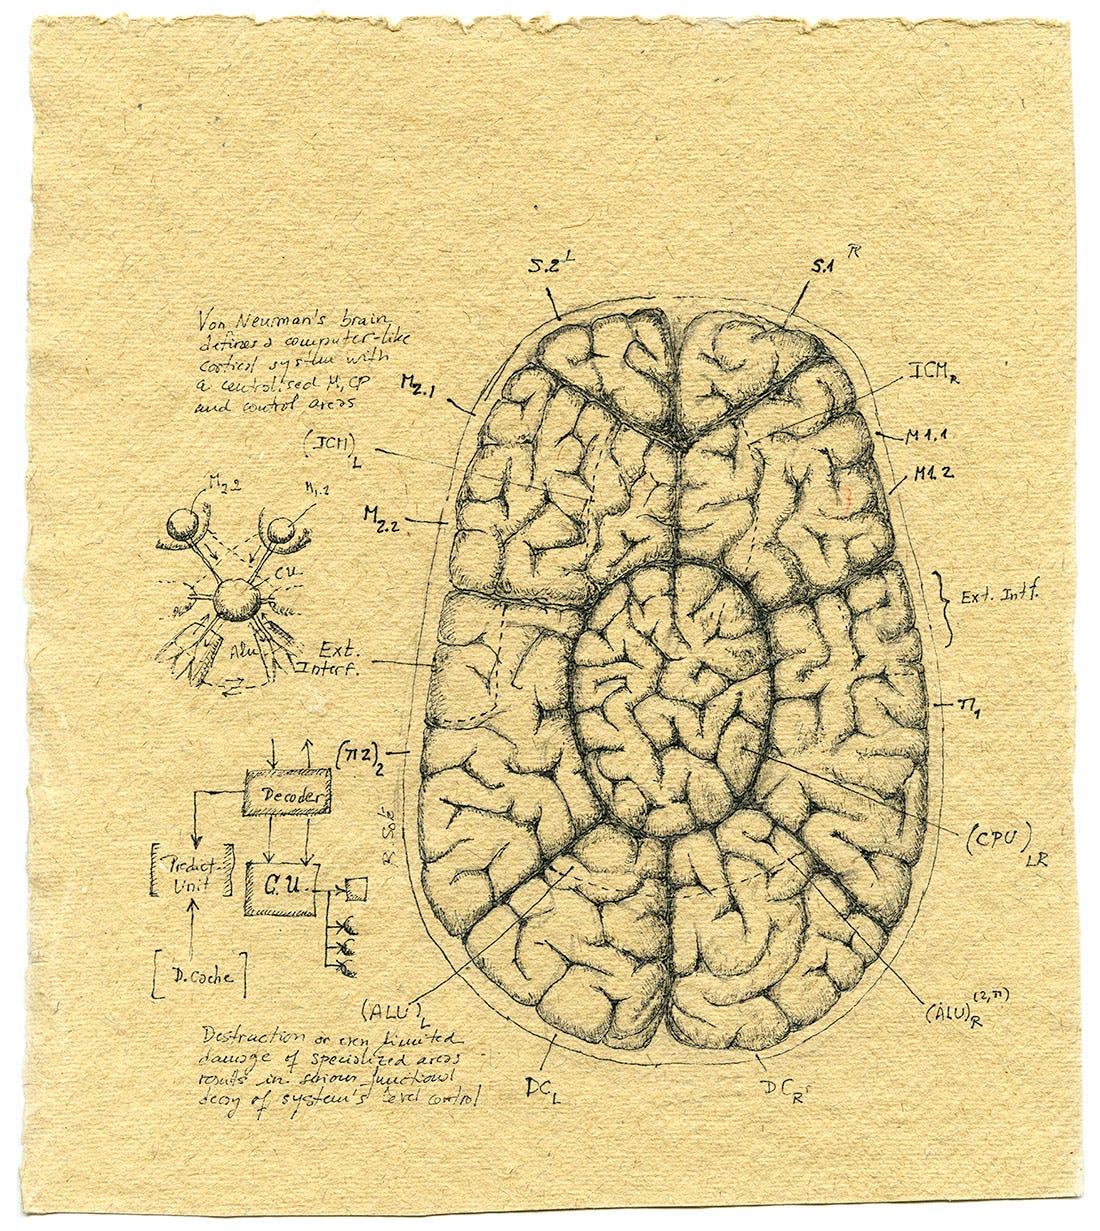 S.2 L
S.1 R
Von Neuman's brain
defines a computer-like
cortical system with
a centralised M, CP
and control areas
M2.1
ICM R
(ICM) L
M1.1
M1.2
M2.2
M2.2
M1.2
CU
Alu
Ext. Intf.
Ext.
Interf.
π1
(π2)2
Decoder
Predict.
Unit
C.U
D.Cache
(CPU) LR
(ALU) L
(ALU) R (2,π)
Destruction or even limited
damage of specialized areas
results in serious functional
decay of system's level control
DC L
DC R